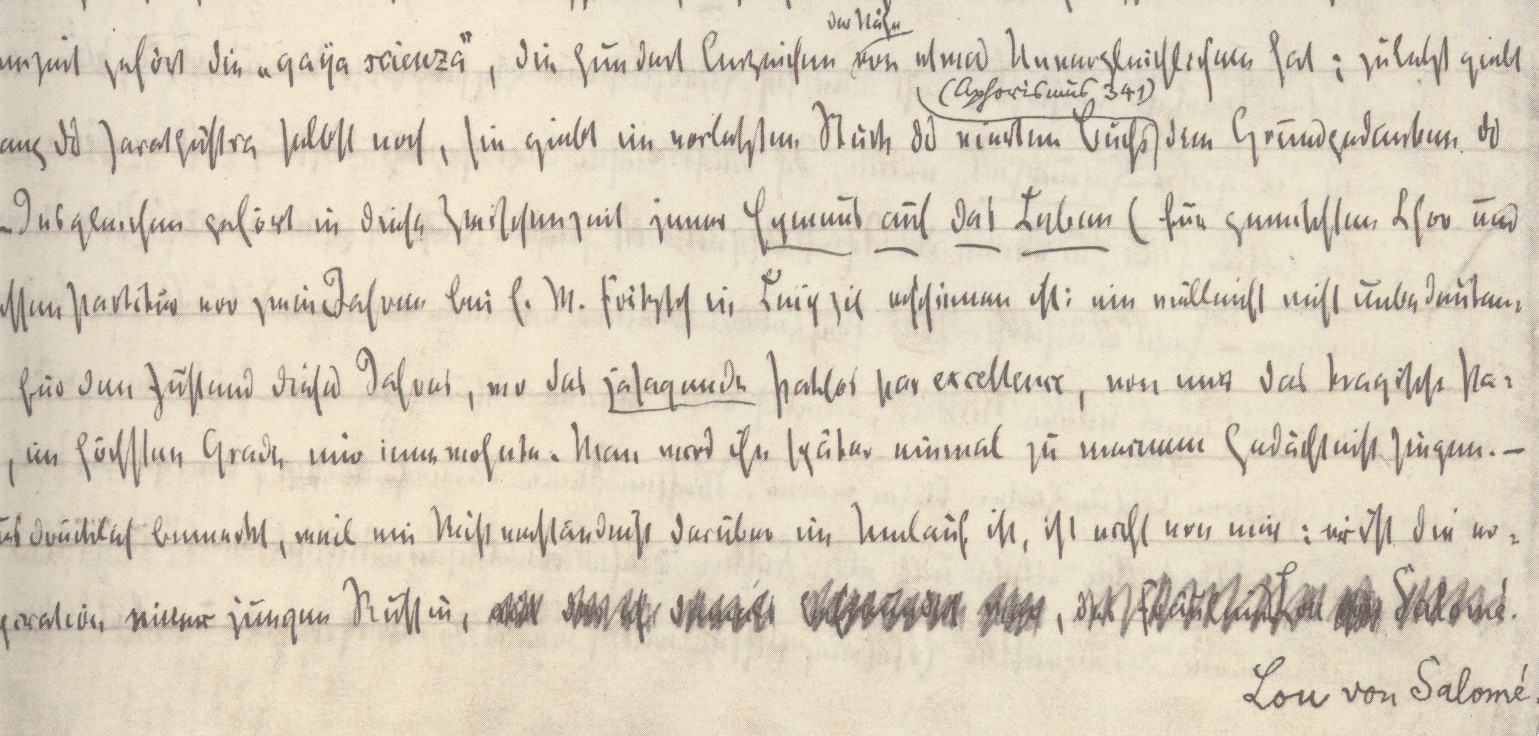 der Nähe
enzeit gehört die „gaya scienza", die hundert Anzeichen von etwas Unvergleichlichem hat; zuletzt giebt
(Aphorismus 341)
ang des Zarathustra selbst noch, sie giebt im vorletzten Stück des vierten Buchs den Grundgedanken des
– Insgleichen gehört in diese Zwischenzeit jener Hymnus auf das Leben (für gemischten Chor und
essen Partitur vor zwei Jahren bei E. W. Fritzsch in Leipzig erschienen ist: ein vielleicht nicht unbedeuten-
für den Zustand dieses Jahres, wo das jasagende Pathos par excellence, von mir das tragische Pa-
, im höchsten Grade mir innewohnte. Man wird ihn später einmal zu meinem Gedächtniß singen. —
usdrücklich bemerkt, weil ein Mißverständniß darüber im Umlauf ist, ist nicht von mir: er ist die er-
piration einer jungen Russin, Salomé.
Lou von Salomé.